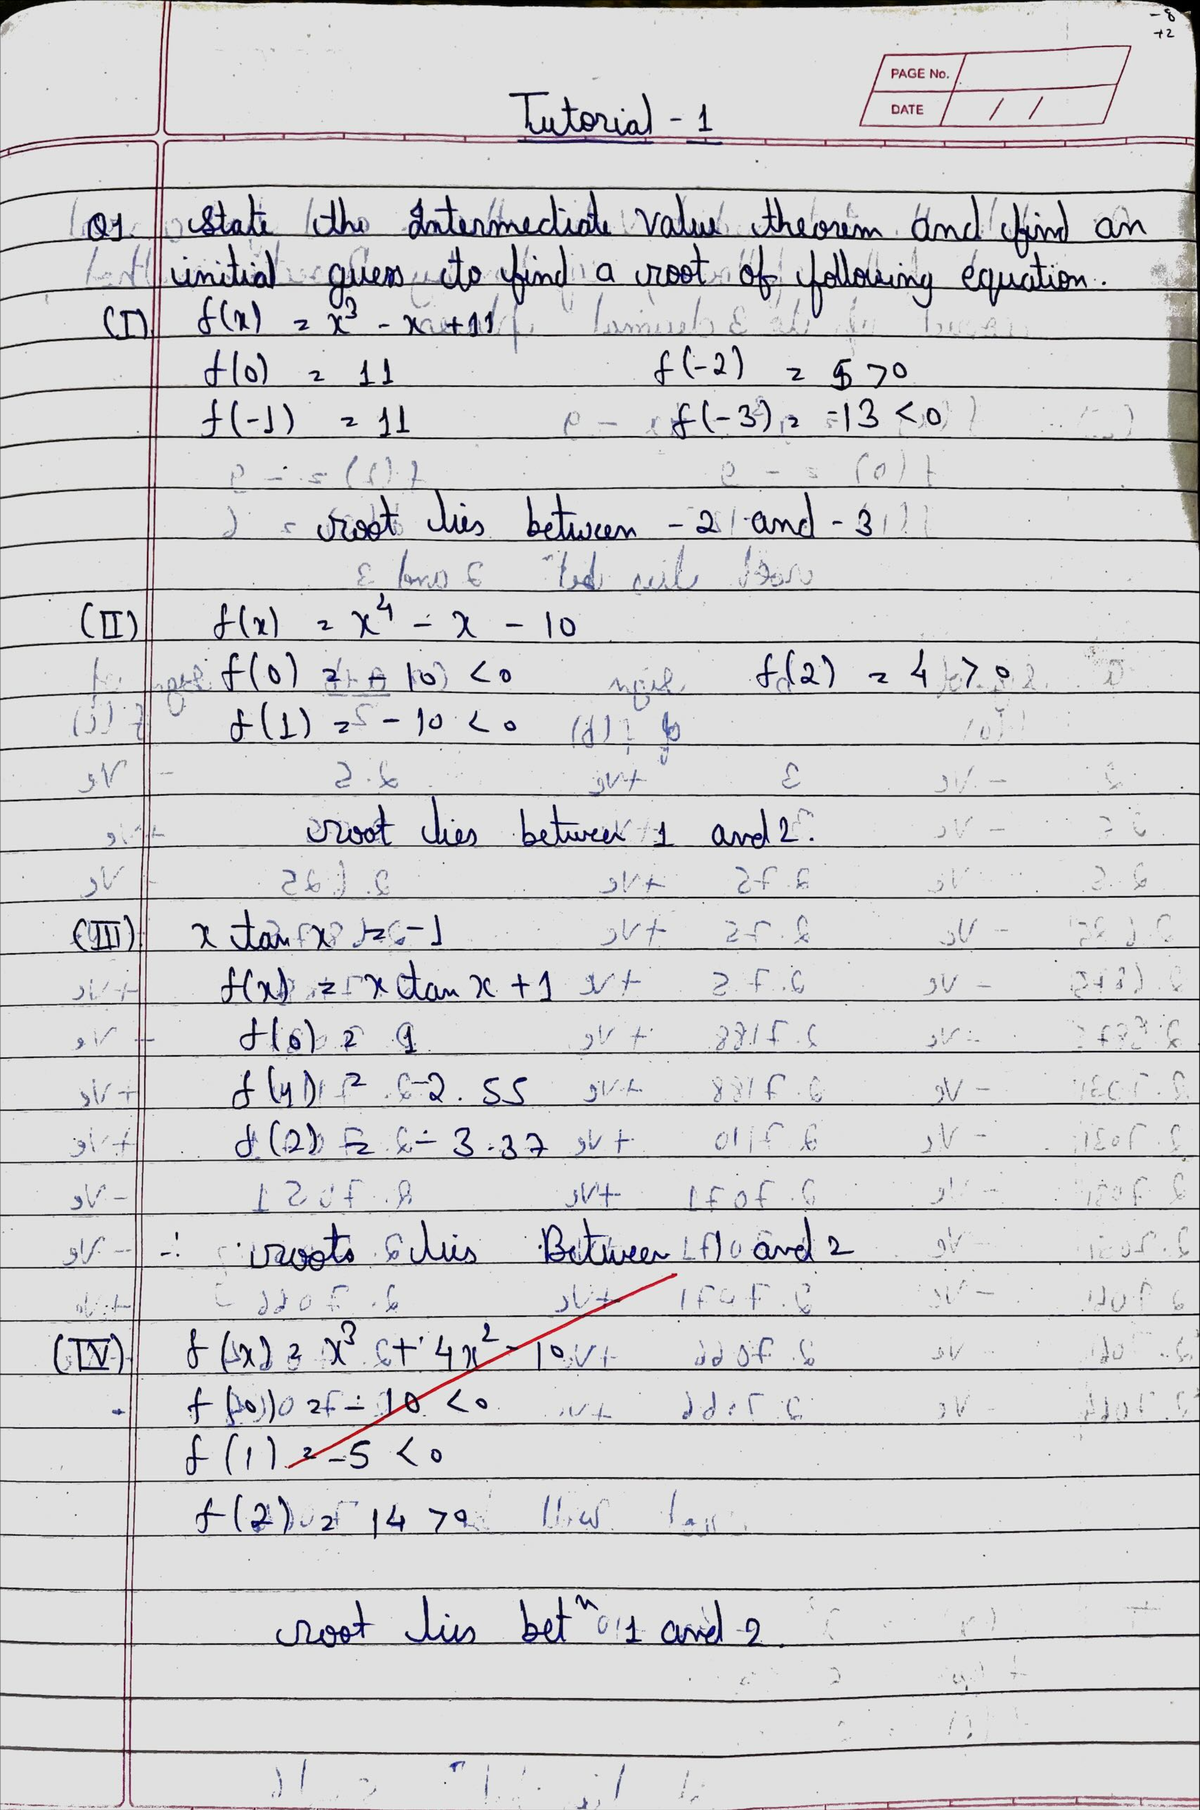 -8
+2
PAGE No.
DATE / /
Tutorial - 1
Q1. State the Intermediate value theorem and find an
initial guess to find a root of following equation.
(I) f(x) = x³ - x + 11
f(0) = 11 f(-2) = 5 >0
f(-1) = 11 f(-3) = -13 <0
root lies between -2 and -3
(II) f(x) = x⁴ - x - 10
f(0) = - 10 <0 f(2) = 4 >0
f(1) = - 10 <0
root lies between 1 and 2.
(III) x tan x = -1
f(x) = x tan x + 1
f(0) = 1
= -2.55
f(2) = - 3.37
∴ roots lies Between and 2
(IV) f(x) = x³ + 4x² - 10
f(0) = - 10 <0
f(1) = -5 <0
f(2) = 14 >0
root lies betⁿ 1 and 2.